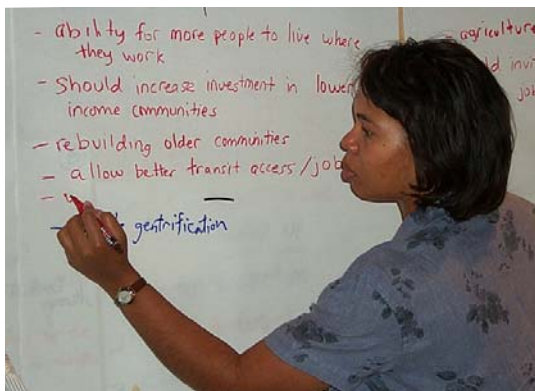 - ability for more people to live where
they work
- Should increase investment in lower
income communities
- rebuilding older communities
- allow better transit access/job
-
gentrification
- agriculture